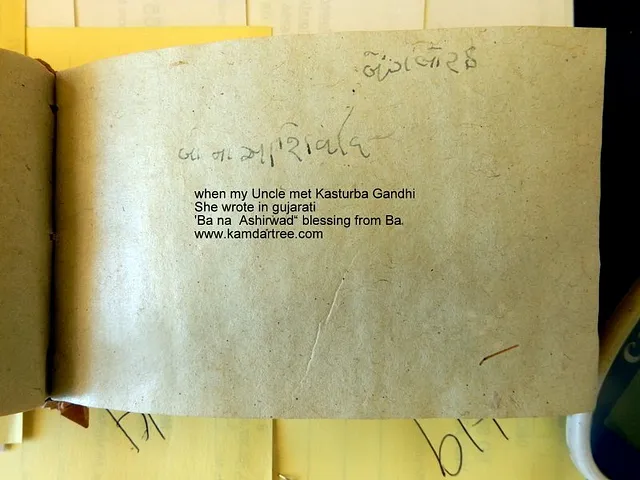 બા ના આશિર્વાદ
when my Uncle met Kasturba Gandhi
She wrote in gujarati
'Ba na Ashirwad“ blessing from Ba.
www.kamdartree.com